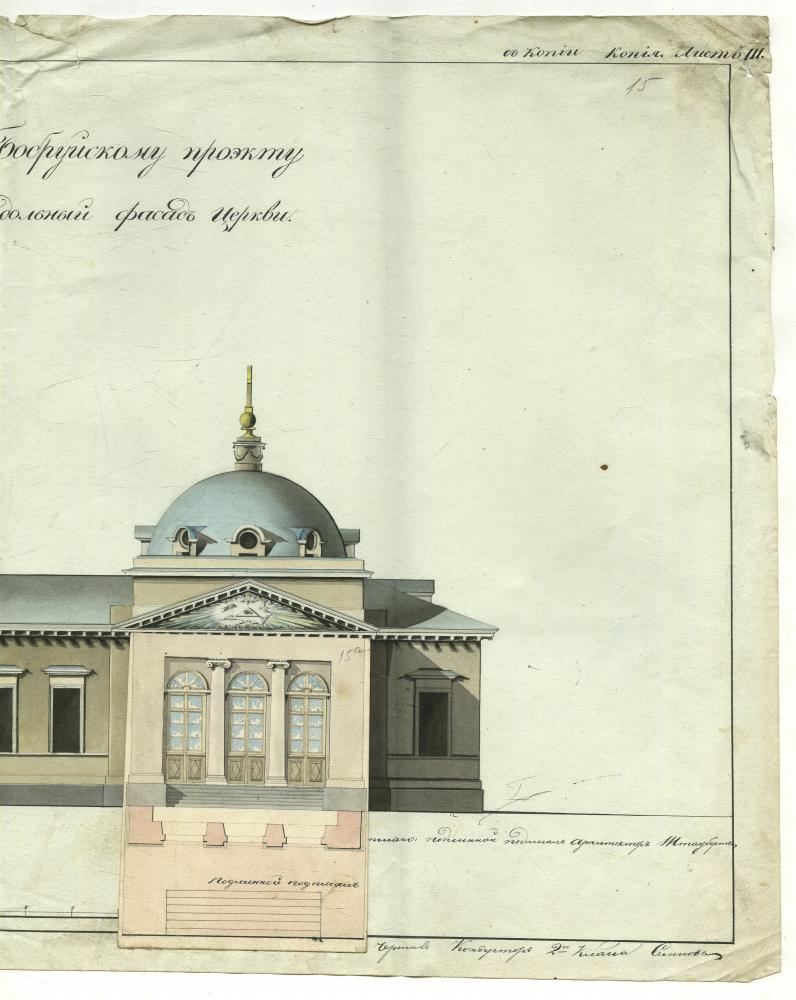 съ копіи Копія. Листъ III.
15
Бобруйскому проэкту
дольный фасадъ Церкви.
15а
подлинной подписалъ Архитекторъ Штаубертъ
Подлинной подписалъ
Чертилъ Кондукторъ 2го класса